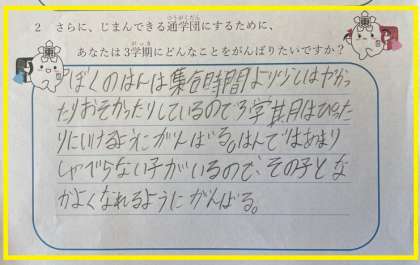 ２ さらに、じまんできる通学団にするために、
あなたは3学期にどんなことをがんばりたいですか？
ぼくのはんは集合時間よりすこしはやかっ
たりおそかったりしているので３学期はぴった
りにいけるようにがんばる。はんではあまり
しゃべらない子がいるので、その子とな
かよくなれるようにがんばる。